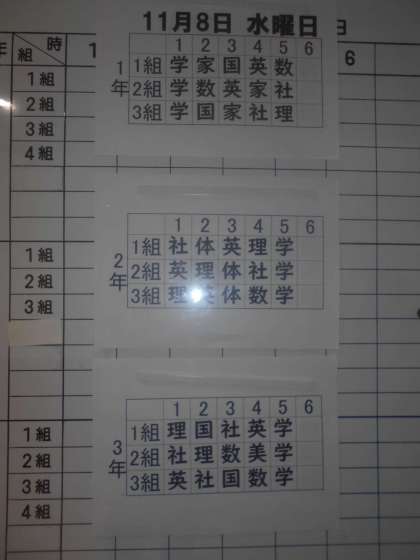 11月8日 水曜日
日
年 組 時 1 6
1組
2組
3組
4組
1組
2組
3組
1組
2組
3組
4組
1年
1 2 3 4 5 6
1組 学 家 国 英 数
2組 学 数 英 家 社
3組 学 国 家 社 理
2年
1 2 3 4 5 6
1組 社 体 英 理 学
2組 英 理 体 社 学
3組 理 英 体 数 学
3年
1 2 3 4 5 6
1組 理 国 社 英 学
2組 社 理 数 美 学
3組 英 社 国 数 学